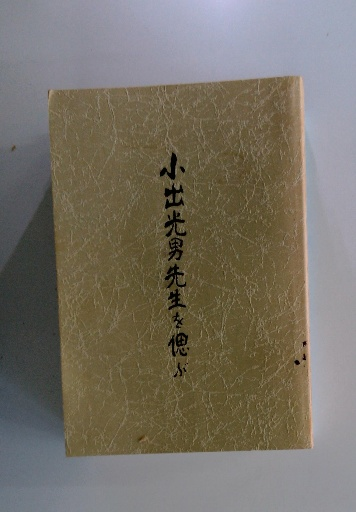 小出光男先生を偲ぶ
小